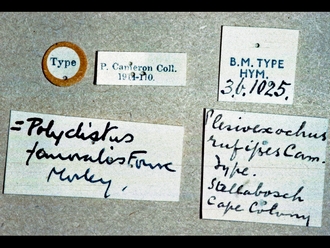 Type
P. Cameron Coll.
1914-110.
B.M. TYPE
HYM.
3.b.1025.
= Polyclistus
femoralis Fourc
Morley,
Plesiexochus
rufipes Cam.
Type.
Stellabosch
Cape Colony